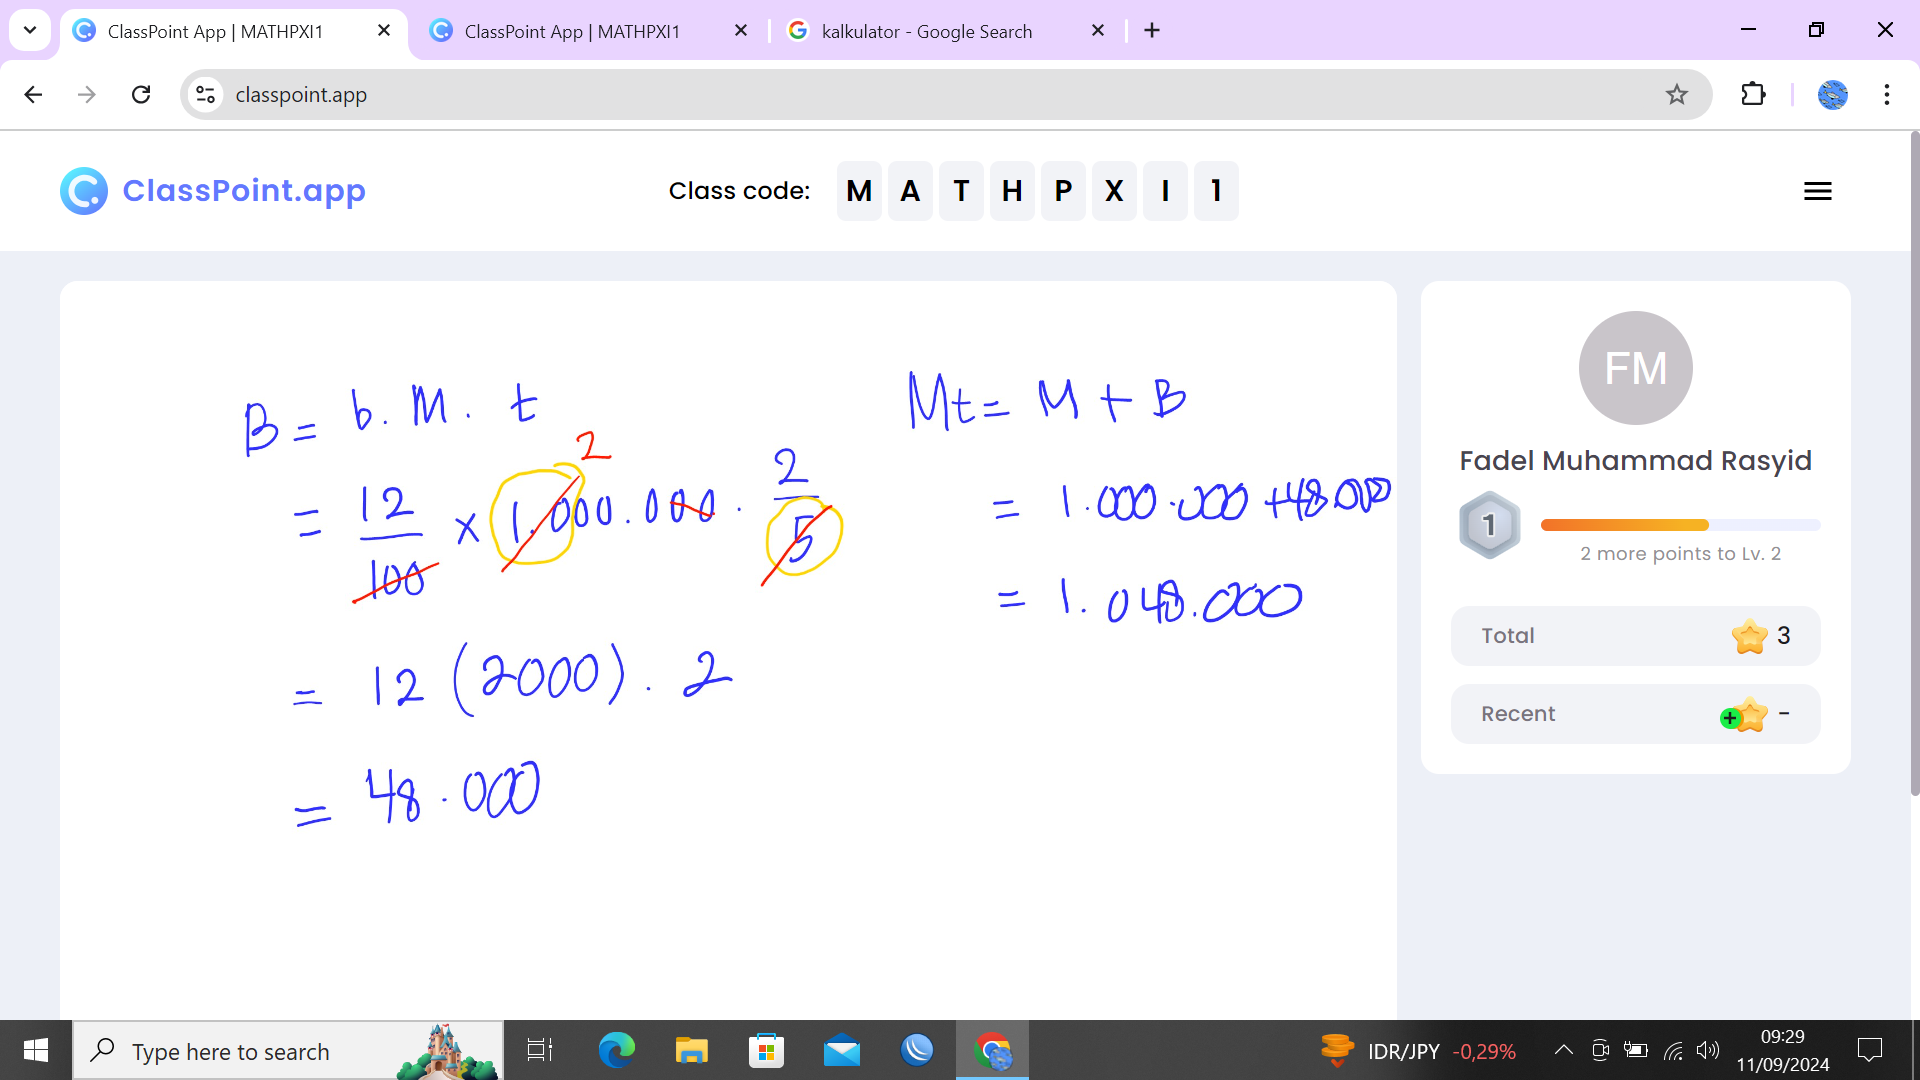 ClassPoint App | MATHPXI1
ClassPoint App | MATHPXI1
kalkulator - Google Search
classpoint.app
ClassPoint.app
Class code: M A T H P X I 1
B = b. M. t
2
= 12/100 x 1.000.000 . 2/5
= 12 (2000) . 2
= 48.000
Mt = M + B
= 1.000.000 + 48.000
= 1.048.000
FM
Fadel Muhammad Rasyid
1
2 more points to Lv. 2
Total 3
Recent -
Type here to search
IDR/JPY -0,29%
09:29
11/09/2024